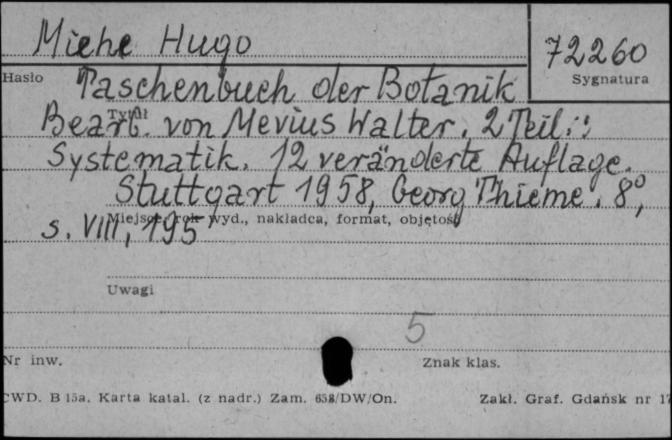 Miehe Hugo
72260
Hasło
Sygnatura
Taschenbuch der Botanik
Tytuł
Bearb. von Mevius Walter. 2 Teil.:
Systematik. 12 veränderte Auflage.
Stuttgart 1958, Georg Thieme. 8°,
Miejsce, rok wyd., nakładca, format, objętość
s. VIII, 195
Uwagi
5
Nr inw.
Znak klas.
CWD. B 15a. Karta katal. (z nadr.) Zam. 658/DW/On.
Zakł. Graf. Gdańsk nr 17